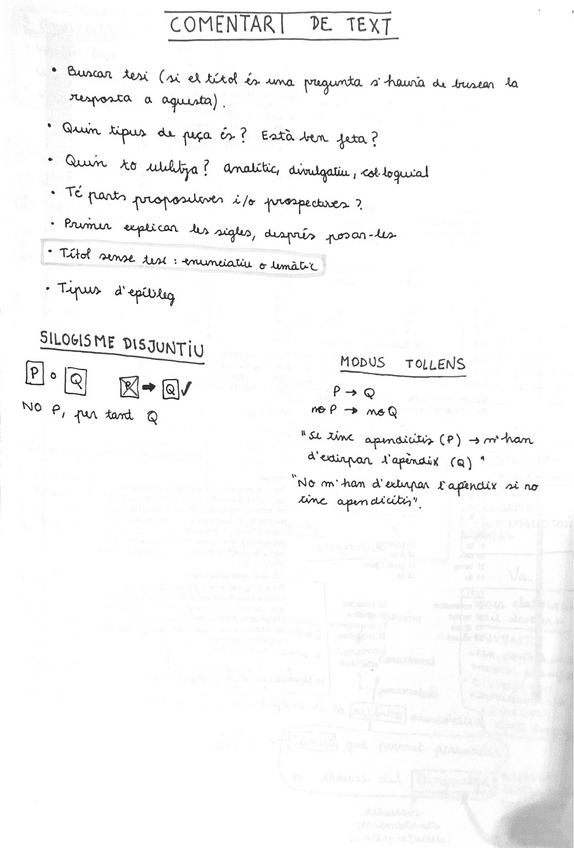 COMENTARI DE TEXT
• Buscar tesi (si el títol és una pregunta s'hauria de buscar la
resposta a aquesta).
• Quin tipus de peça és? Està ben feta?
• Quin to utilitza? analític, divulgatiu, col·loquial
• Té parts propositives i/o prospectives?
• Primer explicar les sigles, després posar-les
• Títol sense tesi: enunciatiu o temàtic
• Tipus d'epíleg
SILOGISME DISJUNTIU
P o Q P → Q ✓
NO P, per tant Q
MODUS TOLLENS
P → Q
no P → no Q
"Si tinc apendicitis (P) → m'han
d'extirpar l'apèndix (Q)"
"No m'han d'extirpar l'apèndix si no
tinc apendicitis".